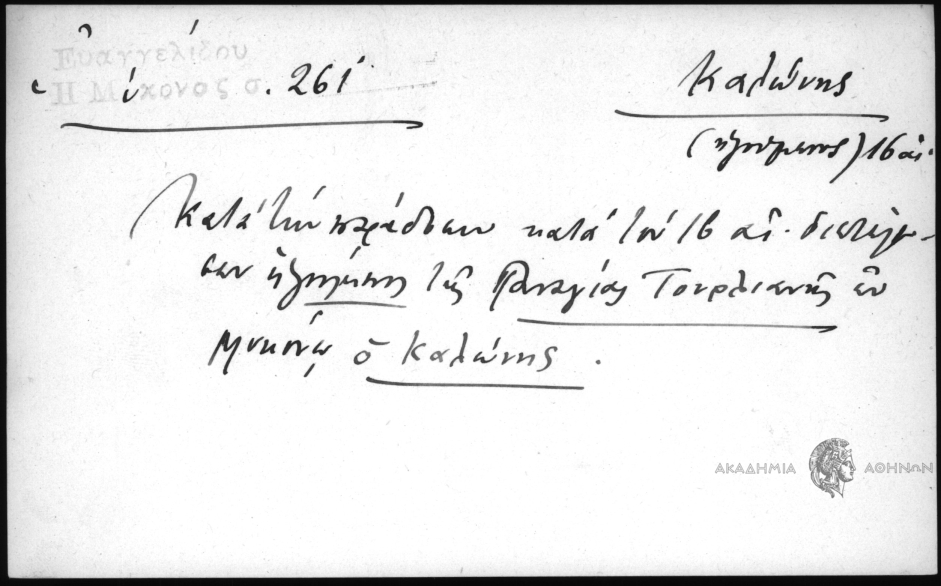 Εὐαγγελίδου
Ἡ Μύκονος σ. 261
Καλώνης
(ἡγούμενος) 16 αἰ.
Κατὰ τὴν παράδοσιν κατὰ τὸν 16 αἰ. διετέλε-
σεν ἡγούμενος τῆς Παναγίας Τουρλιανῆς ἐν
Μυκόνῳ ὁ Καλώνης.
ΑΚΑΔΗΜΙΑ ΑΘΗΝΩΝ